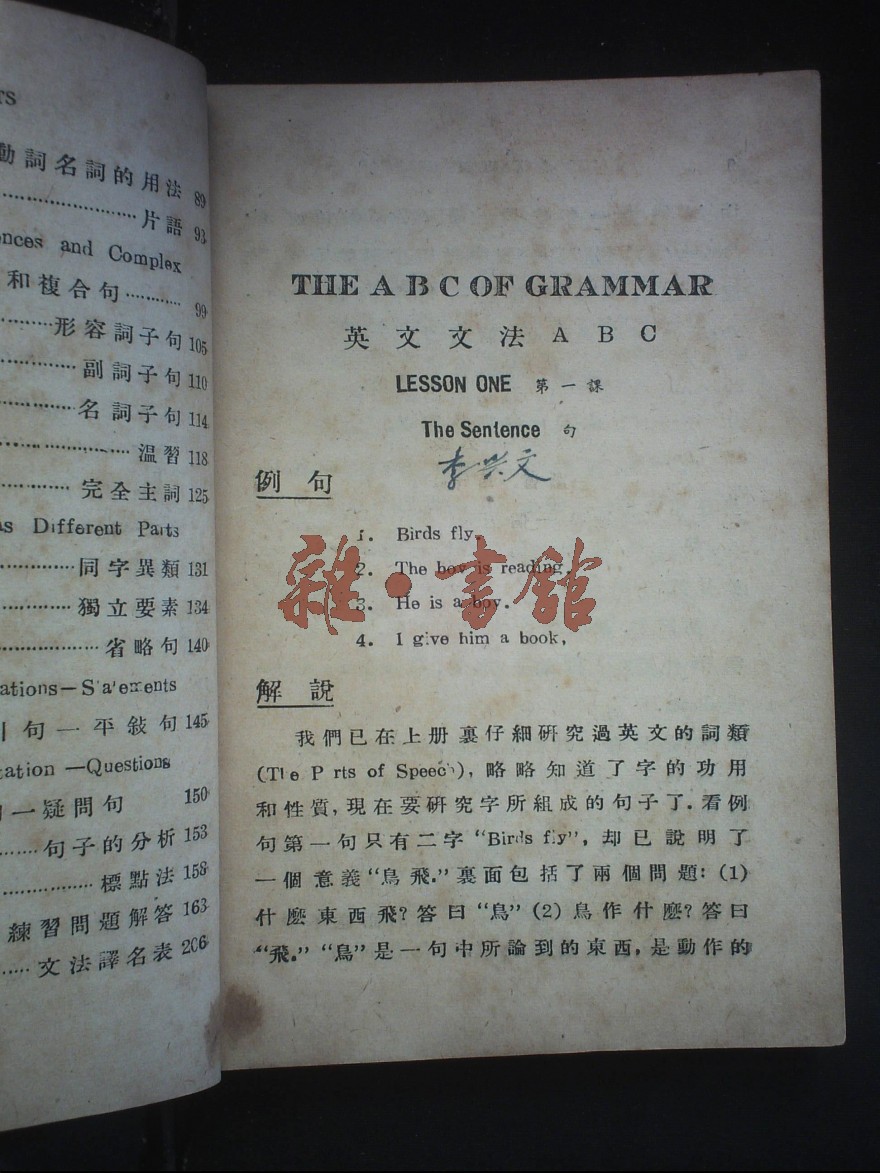 TS
動詞名詞的用法 89
片語 93
ences and Complex
和複合句 99
形容詞子句 105
副詞子句 110
名詞子句 114
温習 118
完全主詞 125
as Different Parts
同字異類 131
獨立要素 134
省略句 140
ations—Statements
句—平敍句 145
tation —Questions
—疑問句 150
句子的分析 153
標點法 158
練習問題解答 163
文法譯名表 206
THE A B C OF GRAMMAR
英文文法ABC
LESSON ONE 第一課
The Sentence 句
李兴文
例句
1. Birds fly.
2. The boy is reading.
3. He is a boy.
4. I give him a book,
雜·書館
解說
我們已在上册裏仔細研究過英文的詞類
(The P rts of Speech), 略略知道了字的功用
和性質, 現在要研究字所組成的句子了. 看例
句第一句只有二字 “Birds fly”, 却已說明了
一個意義“鳥飛.” 裏面包括了兩個問題: (1)
什麼東西飛? 答曰 “鳥” (2) 鳥作什麼? 答曰
“飛.” “鳥” 是一句中所論到的東西, 是動作的